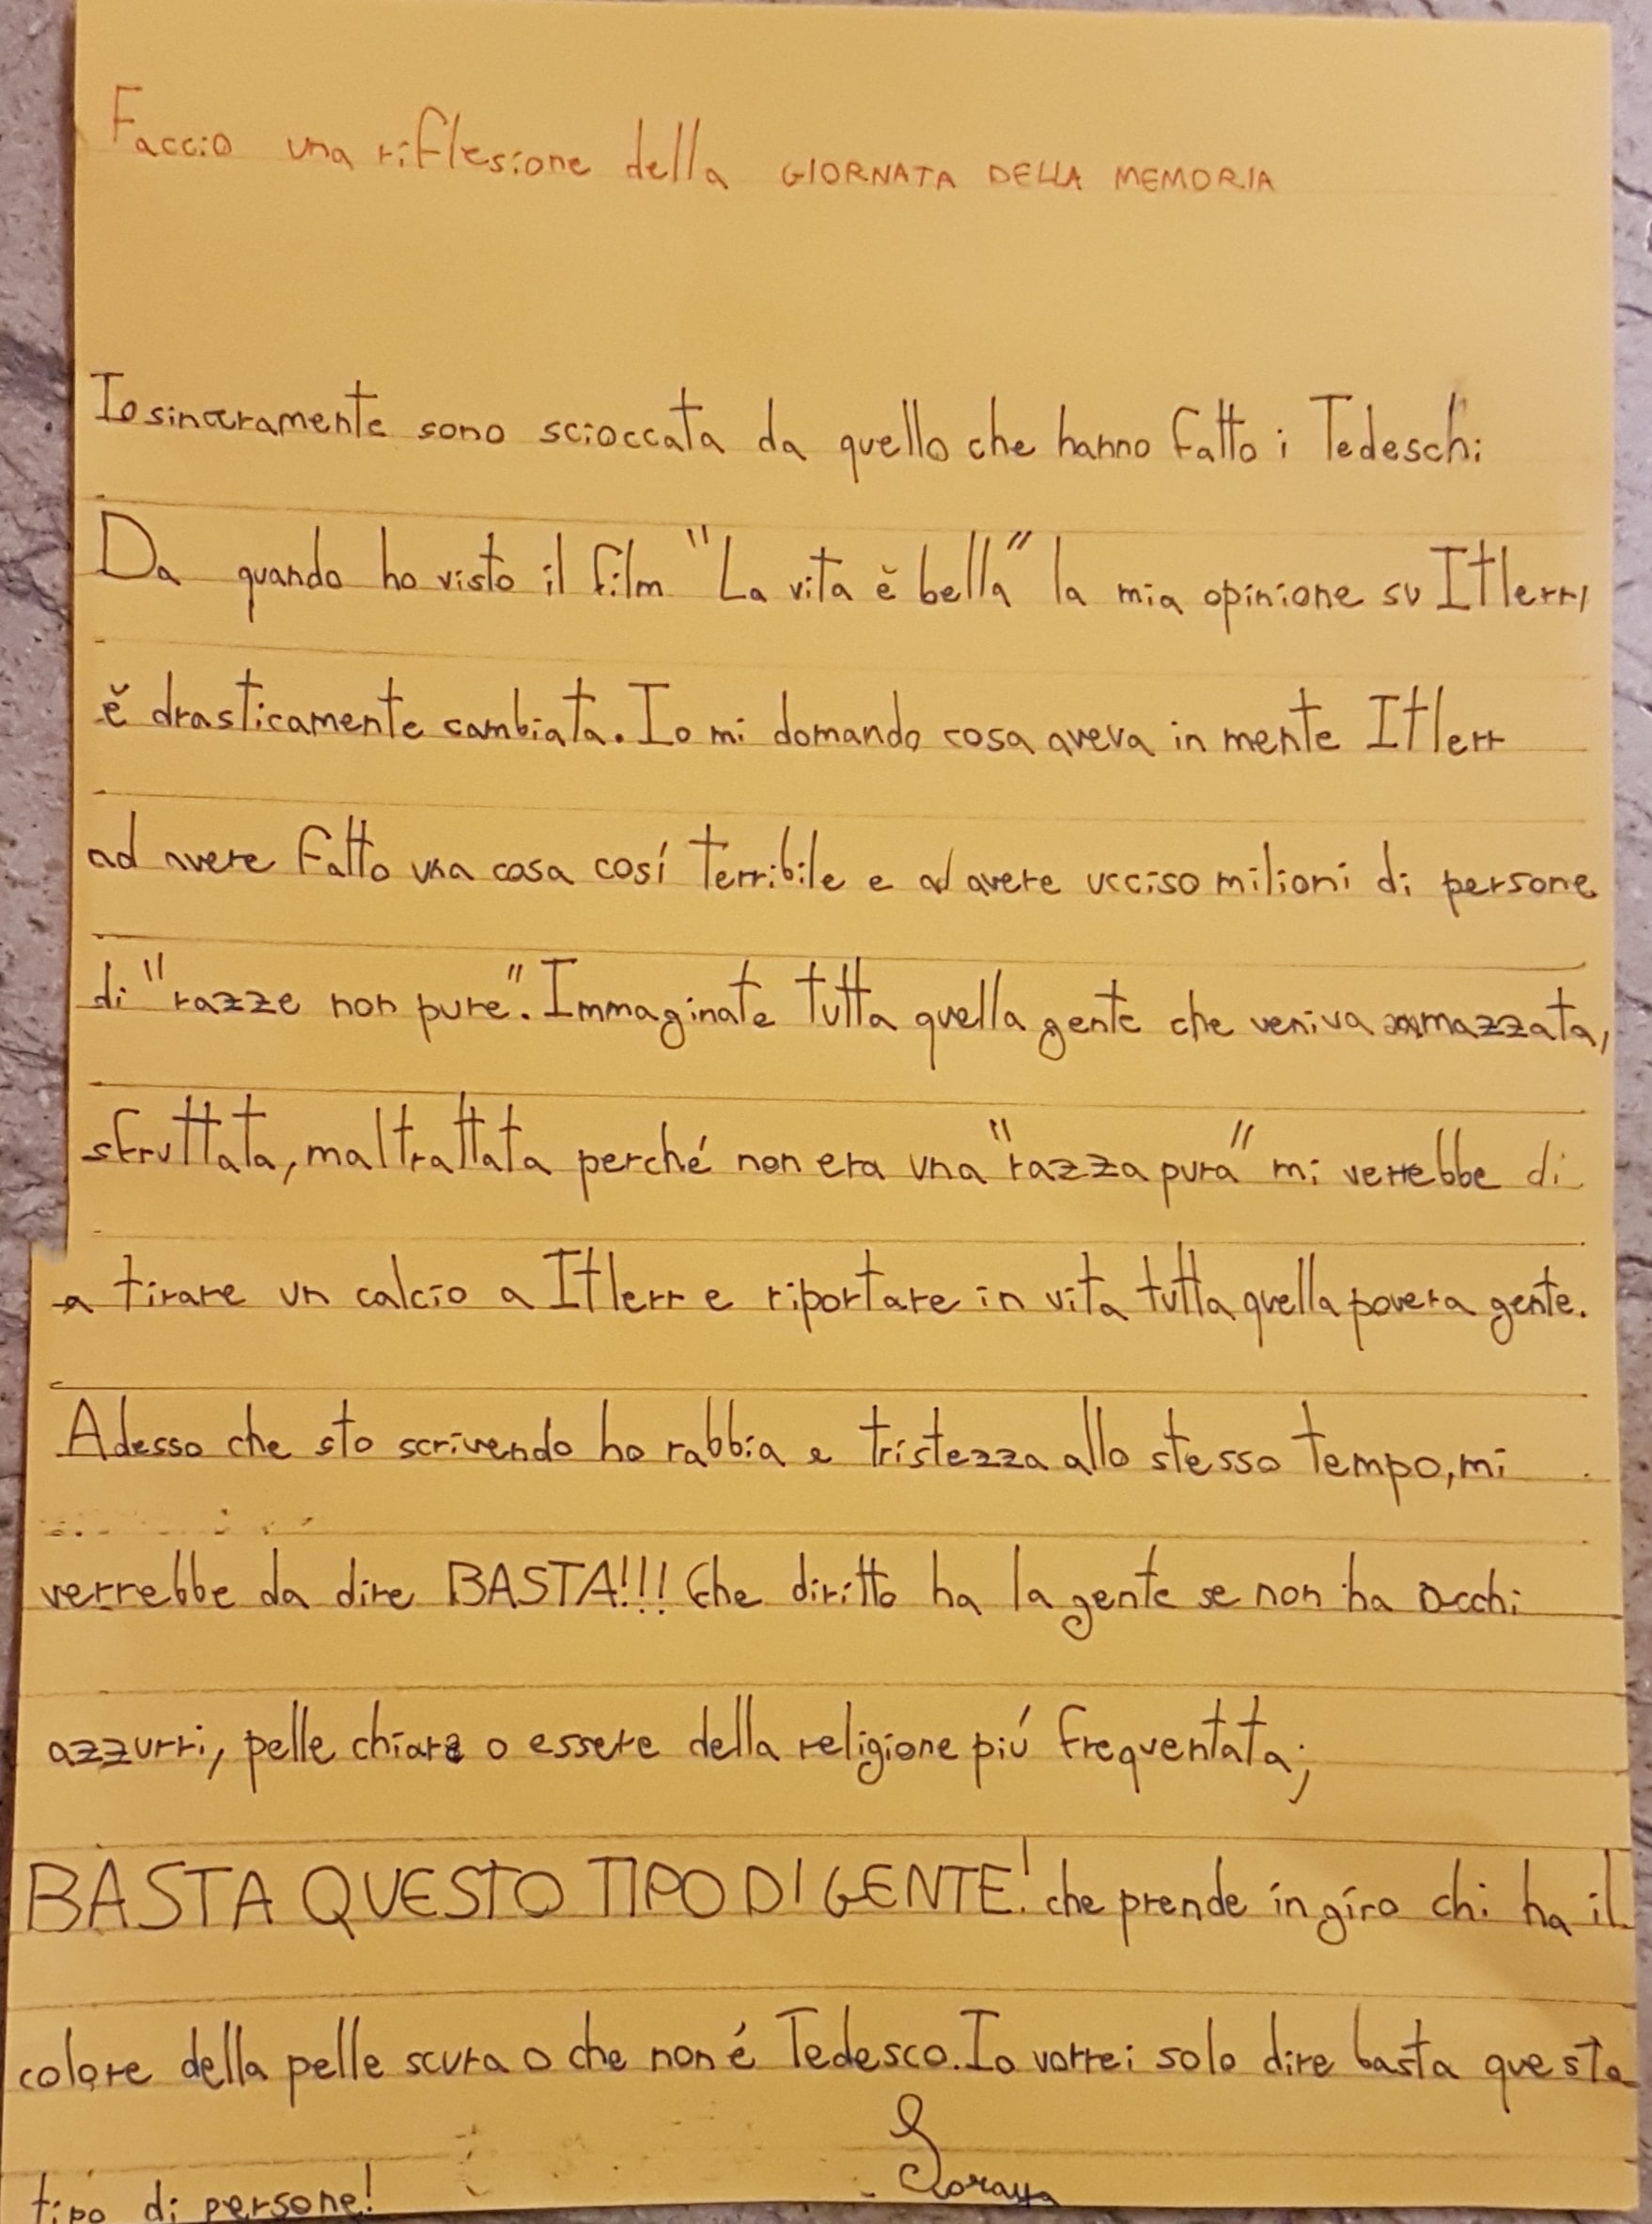 Faccio una riflesione della GIORNATA DELLA MEMORIA
Io sinceramente sono scioccata da quello che hanno fatto i Tedeschi
Da quando ho visto il film "La vita è bella" la mia opinione su Itlerr,
è drasticamente cambiata. Io mi domando cosa aveva in mente Itlerr
ad avere fatto una cosa così terribile e ad avere ucciso milioni di persone
di "razze non pure". Immaginate tutta quella gente che veniva ammazzata,
sfruttata, maltrattata perché non era una "razza pura" mi verrebbe di
a tirare un calcio a Itlerr e riportare in vita tutta quella povera gente.
Adesso che sto scrivendo ho rabbia e tristezza allo stesso tempo, mi
verrebbe da dire BASTA!!! Che diritto ha la gente se non ha occhi
azzurri, pelle chiara o essere della religione più frequentata;
BASTA QUESTO TIPO DI GENTE! che prende in giro chi ha il
colore della pelle scura o che non é Tedesco. Io vorrei solo dire basta questo
tipo di persone!
Soraya